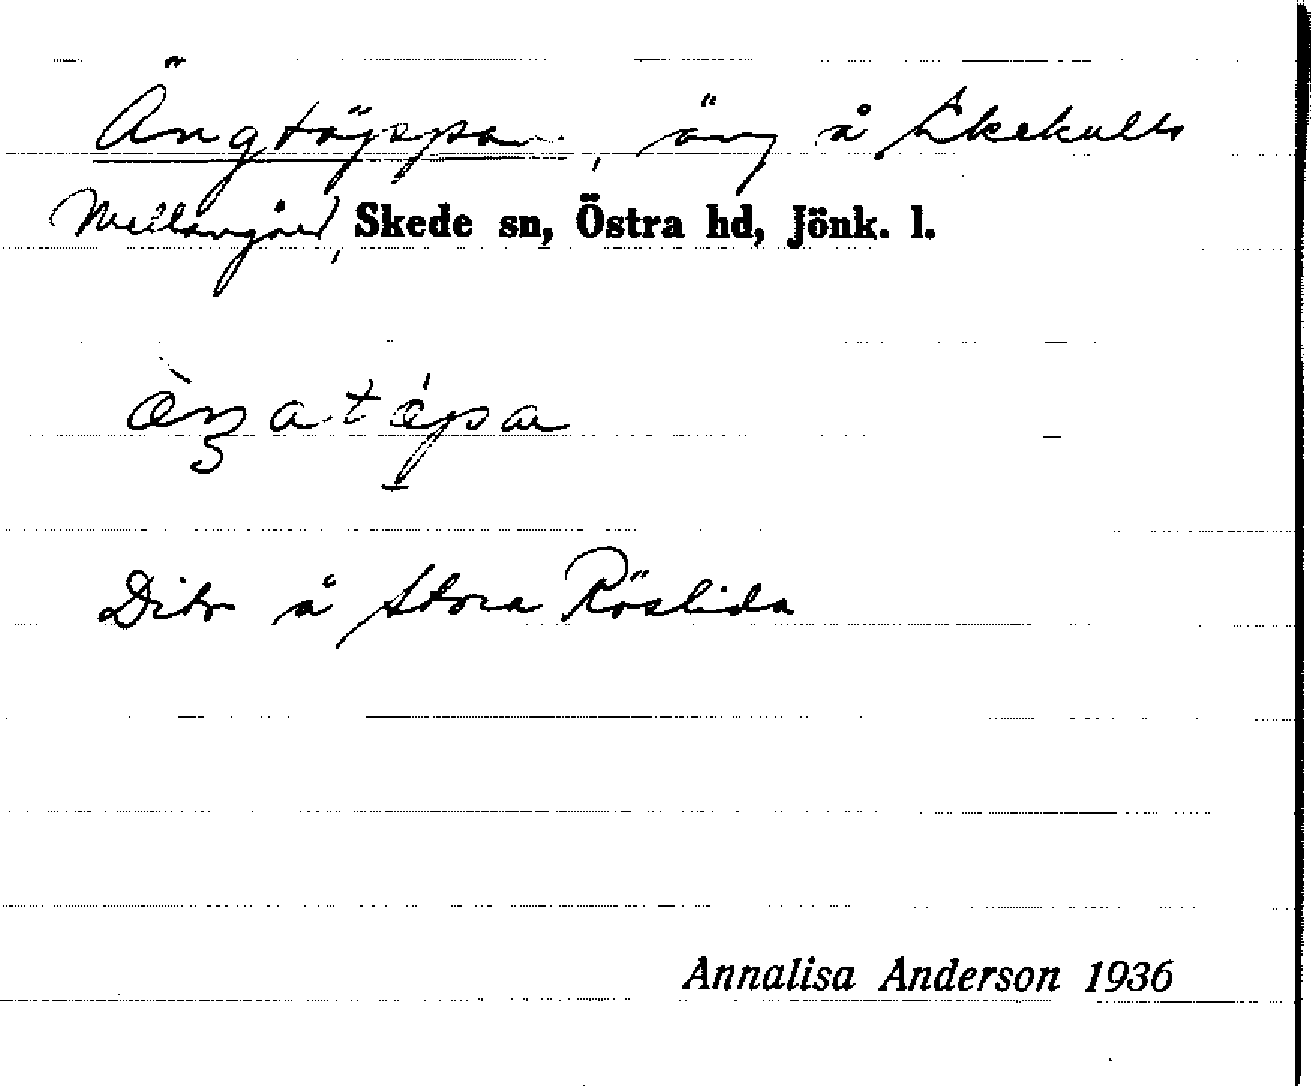 Ängtäppan, äng å Ekekulls
Mellangård, Skede sn, Östra hd, Jönk. l.
Dito å Stora Röslida
Annalisa Anderson 1936